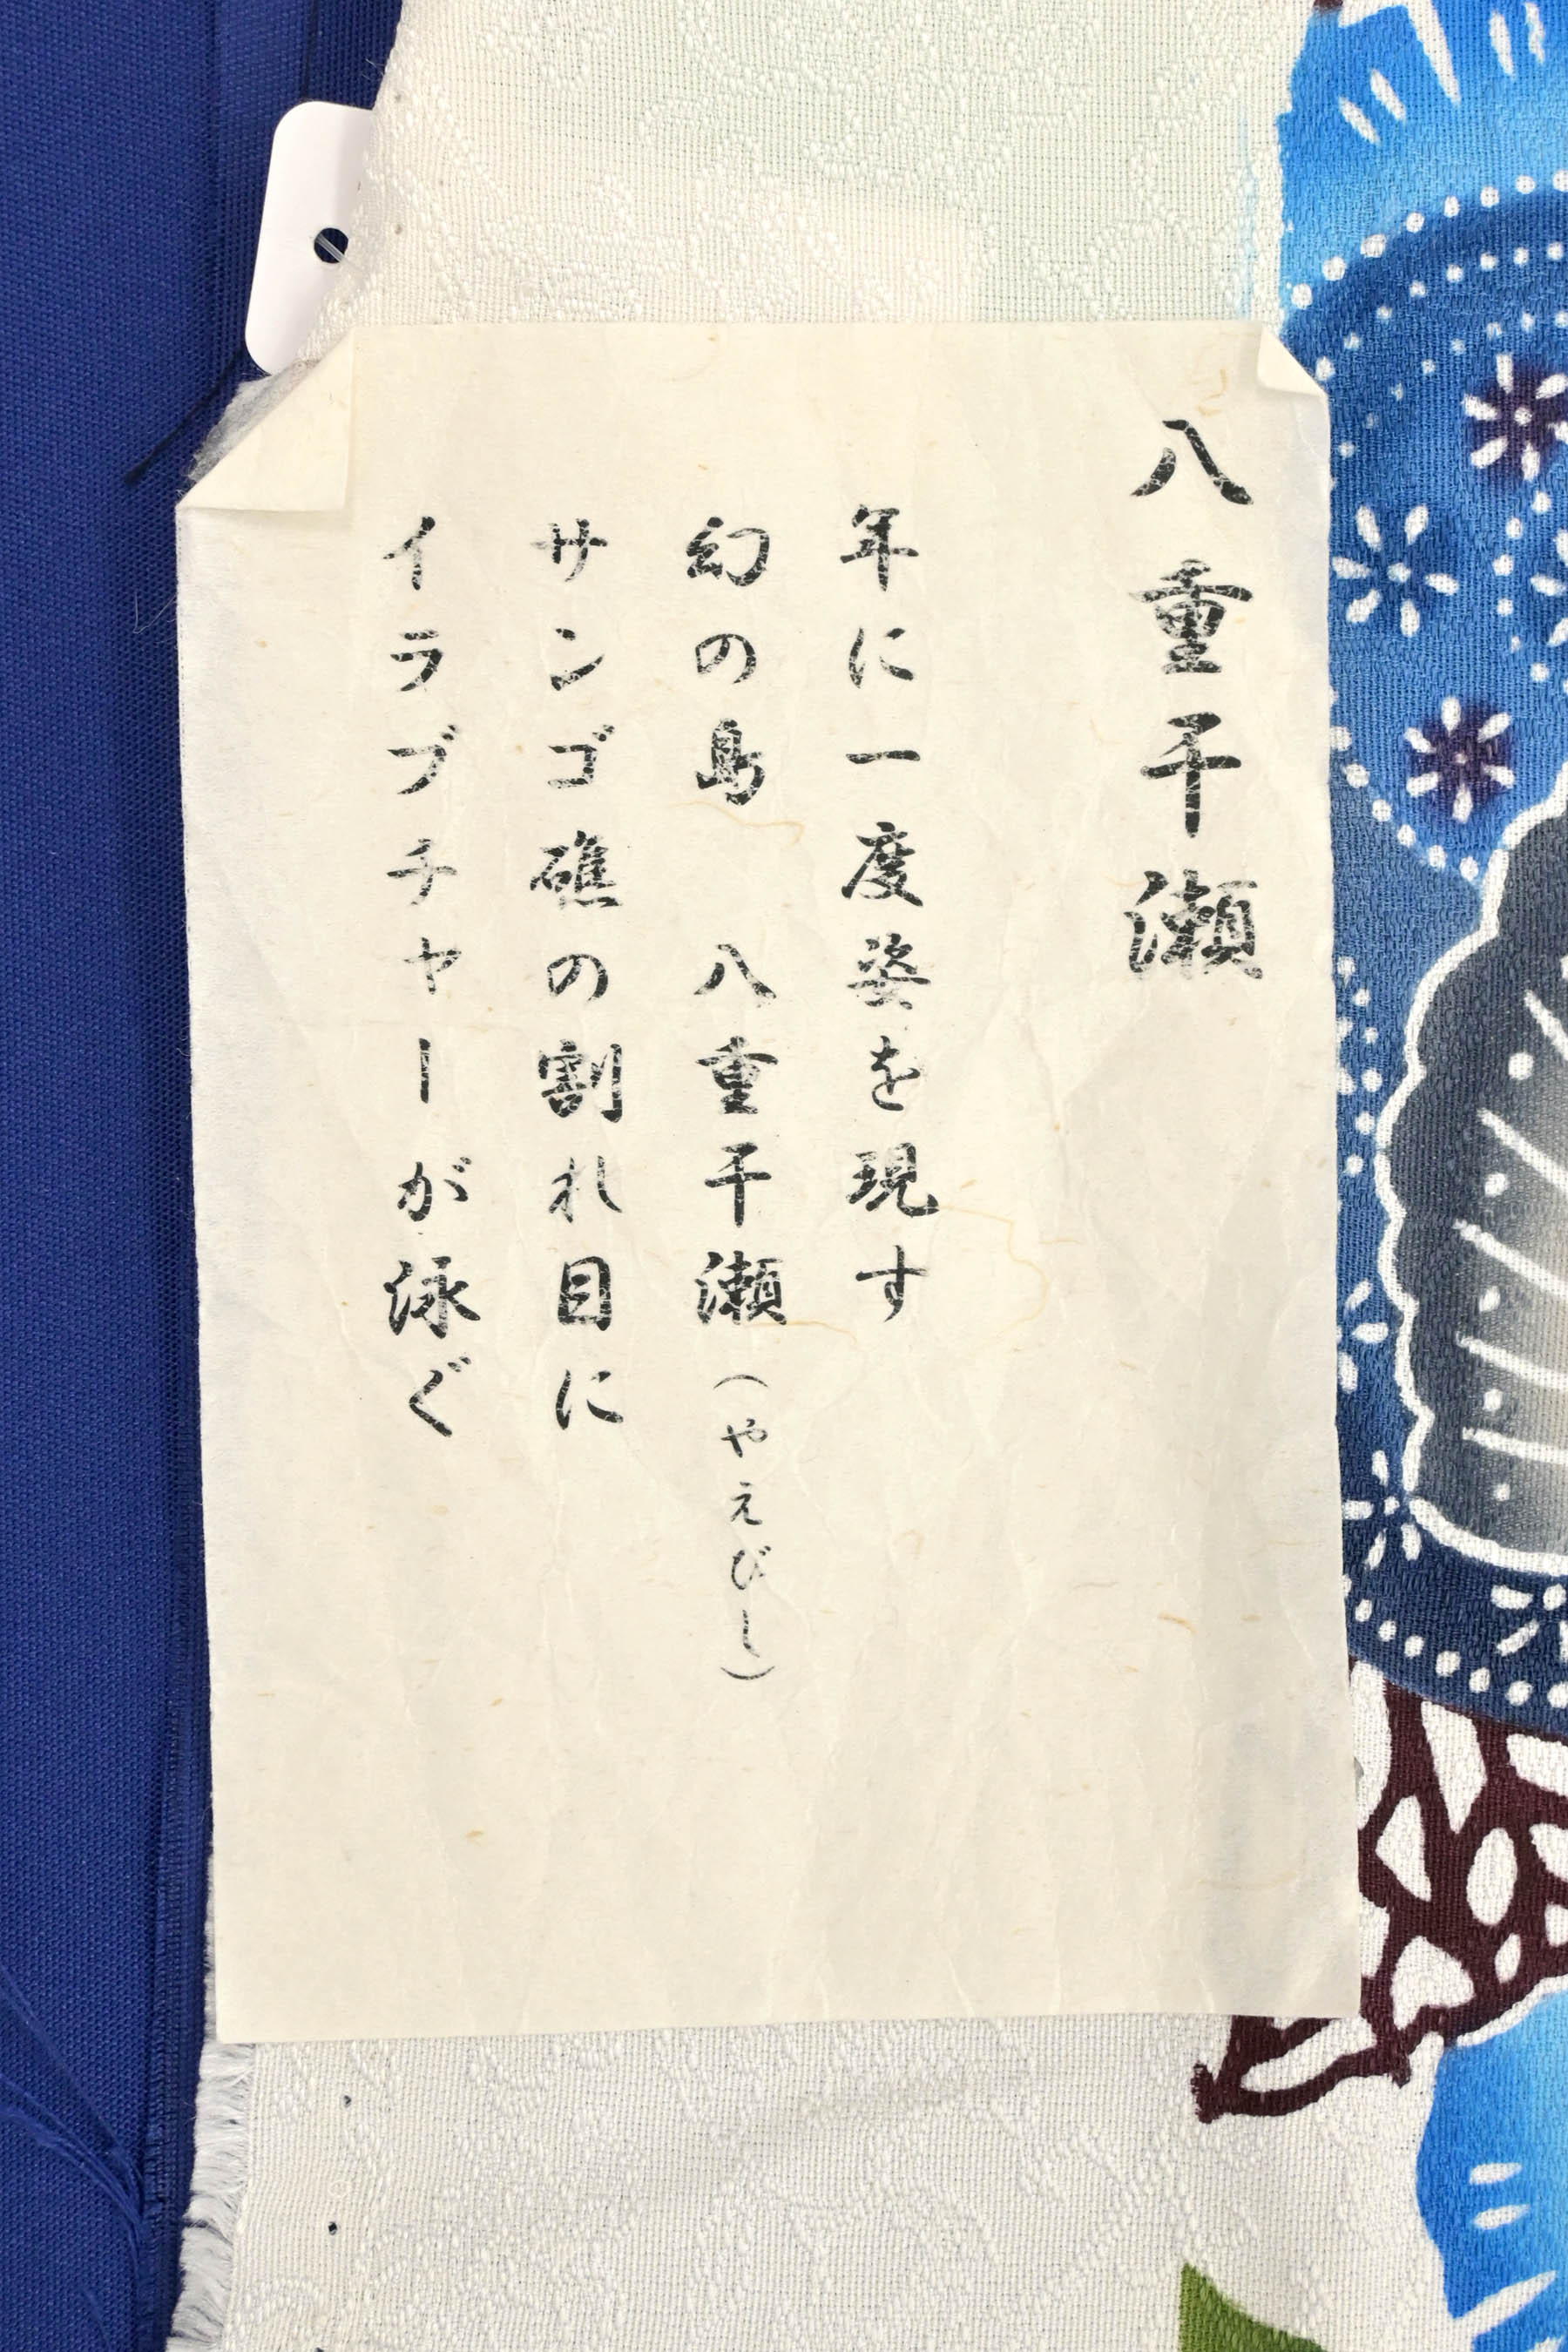 八重干瀬
年に一度姿を現す
幻の島　八重干瀬（やえびし）
サンゴ礁の割れ目に
イラブチャーが泳ぐ